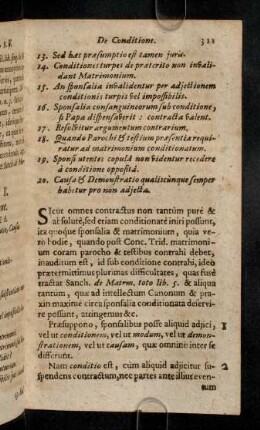 De Conditione. 311
13. Sed hæc præsumptio est tamen juris.
14. Conditiones turpes de præterito non invali-
dant Matrimonium.
15. An sponsalia invalidentur per adjectionem
conditionis turpis vel impossibilis.
16. Sponsalia consanguineorum sub conditione,
si Papa dispensaverit: contracta valent.
17. Resolvitur argumentum contrarium.
18. Quando Parochi & testium præsentia requi-
ratur ad matrimonium conditionatum.
19. Sponsi utentes copulâ non videntur recedere
à conditione oppositâ.
20. Causa & Demonstratio qualitcunque semper
habetur pro non adjecta.
SIcut omnes contractus non tantùm purè &
absolutè, sed etiam conditionatè iniri possunt,
ita quoque sponsalia & matrimonium, quia ve-
rò hodie, quando post Conc. Trid. matrimoni-
um coram parocho & testibus contrahi debet,
inauditum est, id sub conditione contrahi, ideò
prætermittimus plurimas difficultates, quas fusè
tractat Sanch. de Matrm. toto lib. 5. & aliqua
tantùm, quæ ad intellectum Canonum & præ-
maximè circa sponsalia conditionata deservi-
re possunt, attingemus &c.
Præsuppono, sponsalibus posse aliquid adjici, 1
vel ut conditionem, vel ut modum, vel ut demon-
strationem, vel ut causam, quæ omninè inter se
differunt.
Nam conditio est, cùm aliquid adjicitur su- 2
spendens contractum, nec partes ante illius even-
tum